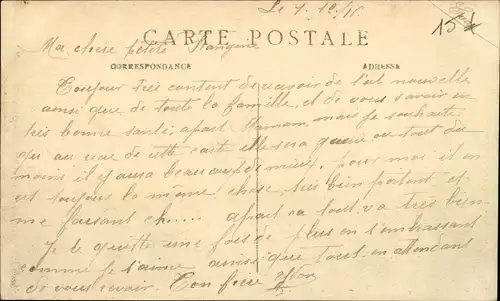 Le 7. 12/15
15 f
Ma chère petite Frangine
CARTE POSTALE
CORRESPONDANCE
ADRESSE
Toujour très content de recevoir de tes nouvelle
ainsi que de toute la famille, et de vous savoir en
très bonne santé, apart Maman, mais je souhaite
qui au reçu de cette carte elle sera guerie ou tout du
moins il y aura beaucoup de mieux, pour moi il en
est toujours la même chose très bien portant et
me faisant ch..... apart sa tout va très bien
Je te quitte une fois de plus en t'embrassant
comme je t'aime ainsi que tout en attendant
de vous revoir. Ton frère